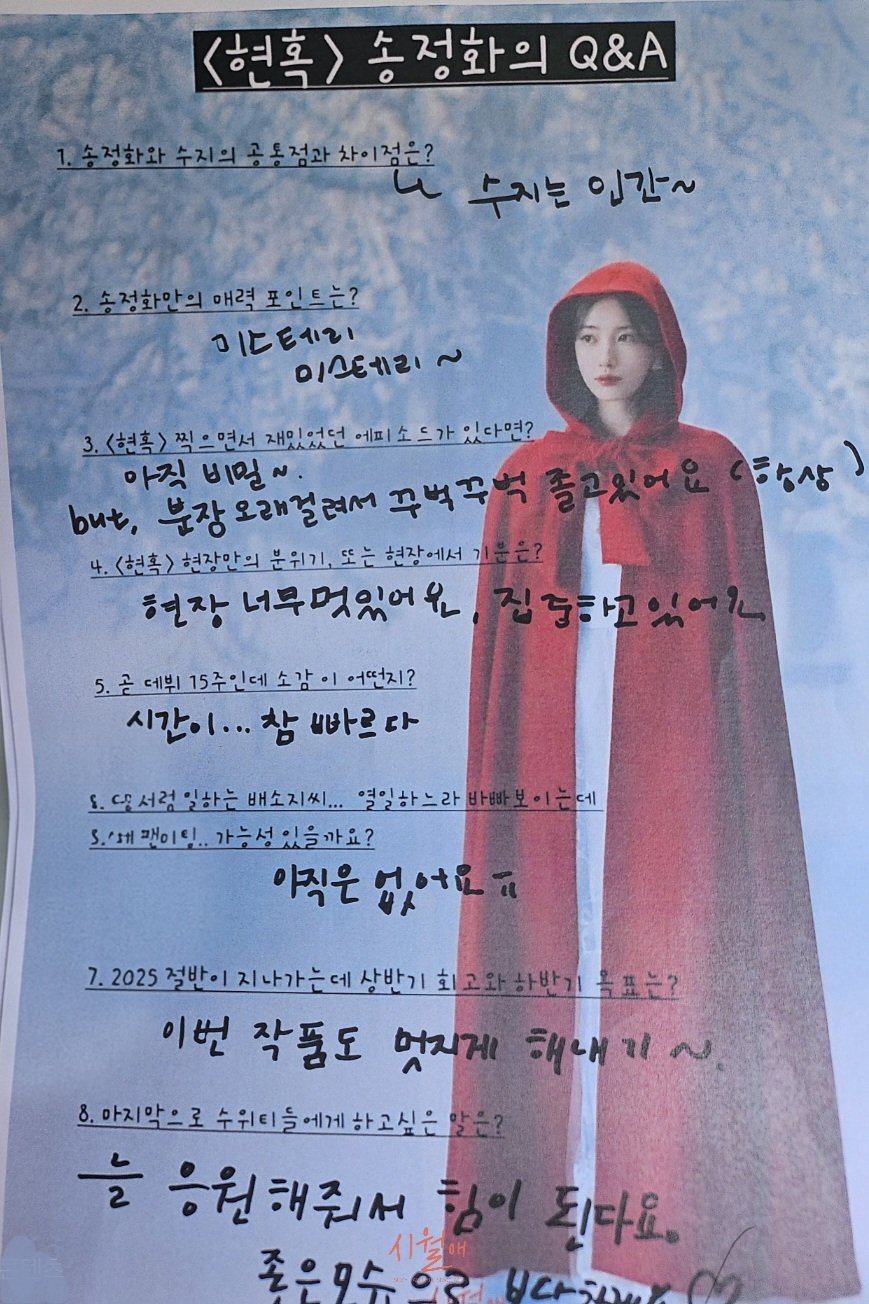 <현혹> 송정화의 Q&A
1. 송정화와 수지의 공통점과 차이점은?
ㄴ 수지는 인간~
2. 송정화만의 매력 포인트는?
미스테리
미스테리 ~
3. <현혹> 찍으면서 재밌었던 에피소드가 있다면?
아직 비밀~.
but, 분장 오래걸려서 꾸벅꾸벅 졸고있어요 (항상)
4. <현혹> 현장만의 분위기, 또는 현장에서 기분은?
현장 너무멋있어요, 집중하고있어요
5. 곧 데뷔 15주인데 소감이 어떤지?
시간이... 참 빠르다
일하는 배소지씨... 열일하느라 바빠보이는데
팬미팅.. 가능성 있을까요?
아직은 없어요 ㅠ
7. 2025 절반이 지나가는데 상반기 회고와 하반기 목표는?
이번 작품도 멋지게 해내기 ~.
8. 마지막으로 수위티들에게 하고싶은 말은?
늘 응원해줘서 힘이 된다요.
좋은모습으로
시월애